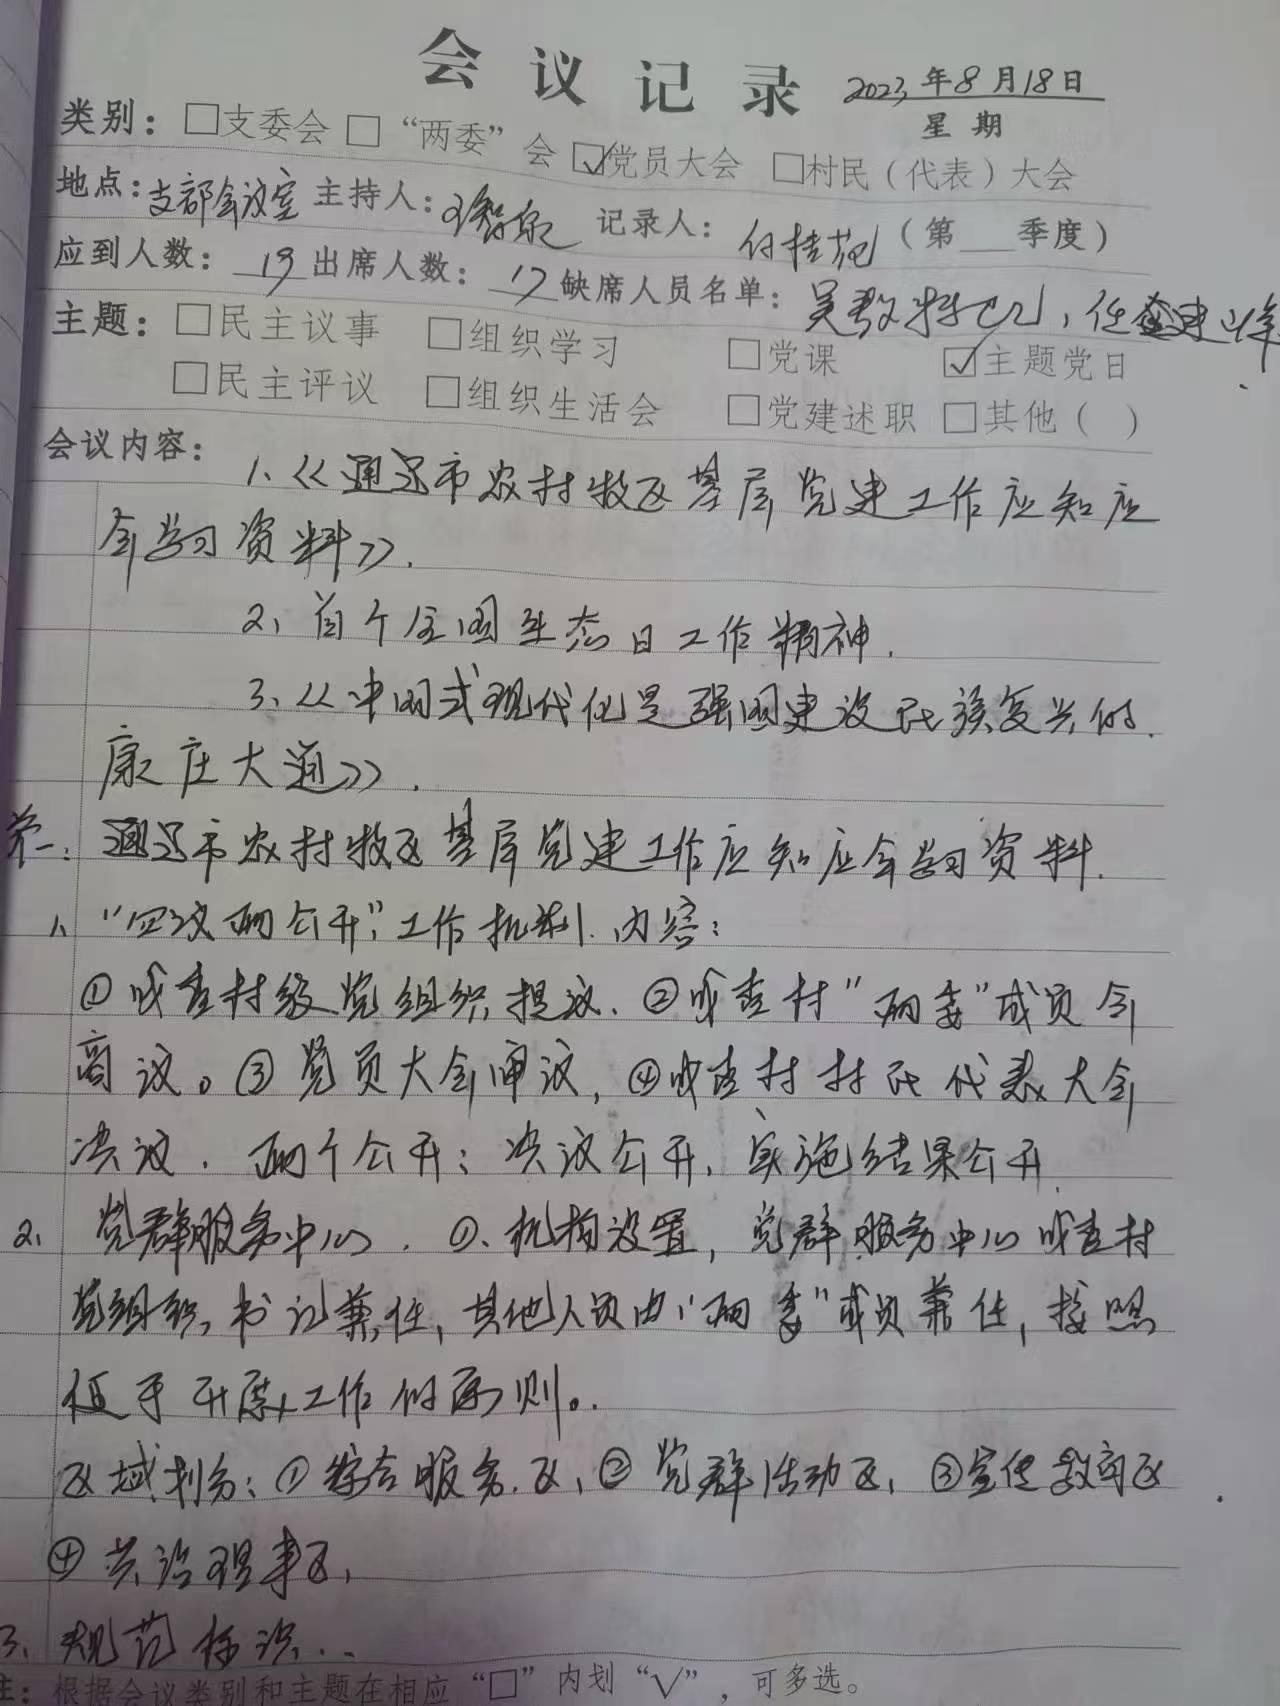 会议记录 2023年8月18日
星期
类别：□支委会 □“两委”会 ☑党员大会 □村民（代表）大会
地点：支部会议室 主持人： 记录人：付桂苑（第 季度）
应到人数：19 出席人数：17 缺席人员名单：
主题：□民主议事 □组织学习 □党课 ☑主题党日
□民主评议 □组织生活会 □党建述职 □其他（ ）
会议内容：1、《通辽市农村牧区基层党建工作应知应
会学习资料》.
2、首个全国生态日工作精神.
3、《中国式现代化是强国建设民族复兴的
康庄大道》.
第一：通辽市农村牧区基层党建工作应知应会学习资料.
1、“四议两公开”工作机制.内容：
①嘎查村级党组织提议.②嘎查村“两委”成员会
商议。③党员大会审议，④嘎查村村民代表大会
决议.两个公开：决议公开，实施结果公开.
2、党群服务中心.①、机构设置，党群服务中心嘎查村
党组织书记兼任，其他人员由“两委”成员兼任，按照
便于开展工作的原则。
区域划分：①综合服务区，②党群活动区，③宣传教育区
④共治理事区，
3、规范标识...
注：根据会议类别和主题在相应“□”内划“√”，可多选。